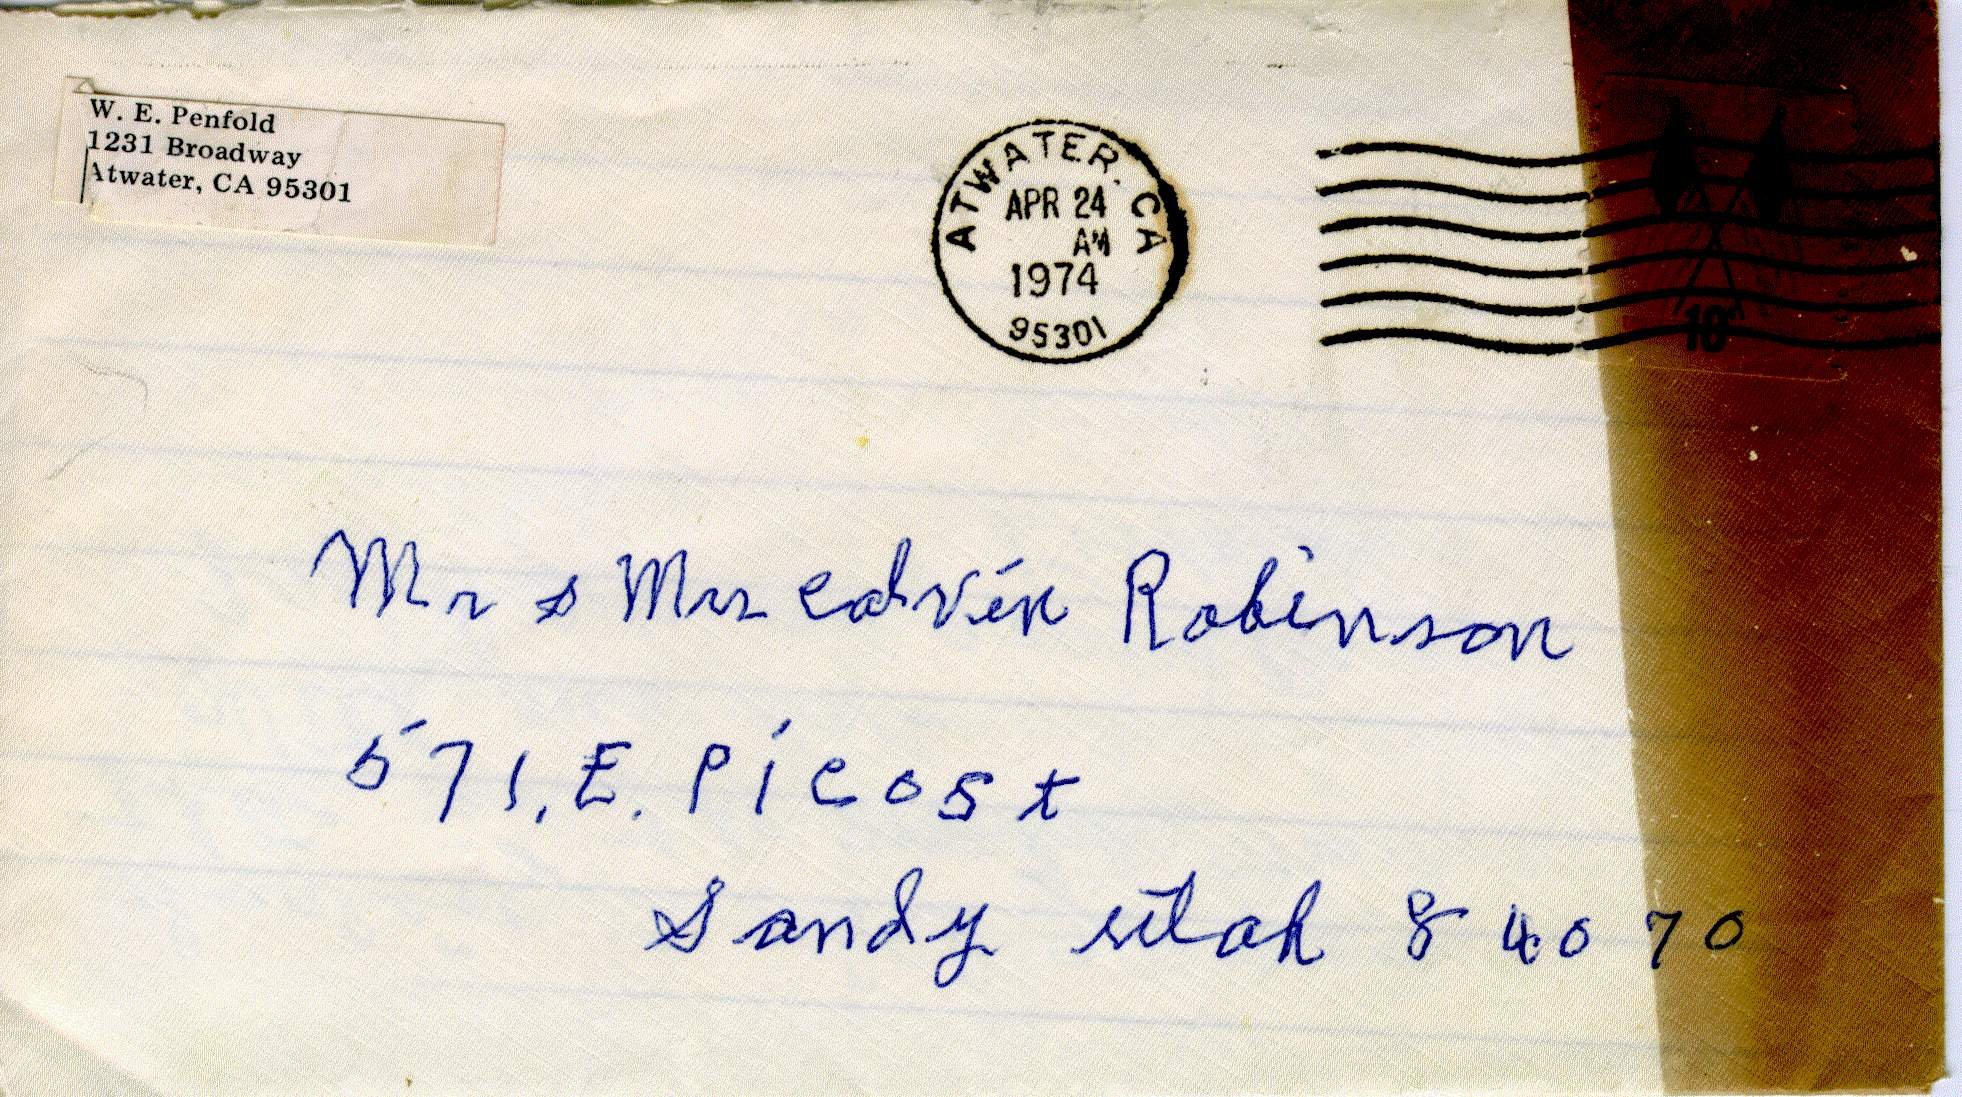 W. E. Penfold
1231 Broadway
Atwater, CA 95301
ATWATER, CA
APR 24
AM
1974
95301
10
Mr & Mrs Calvin Robinson
571, E. Pico St
Sandy Utah 84070